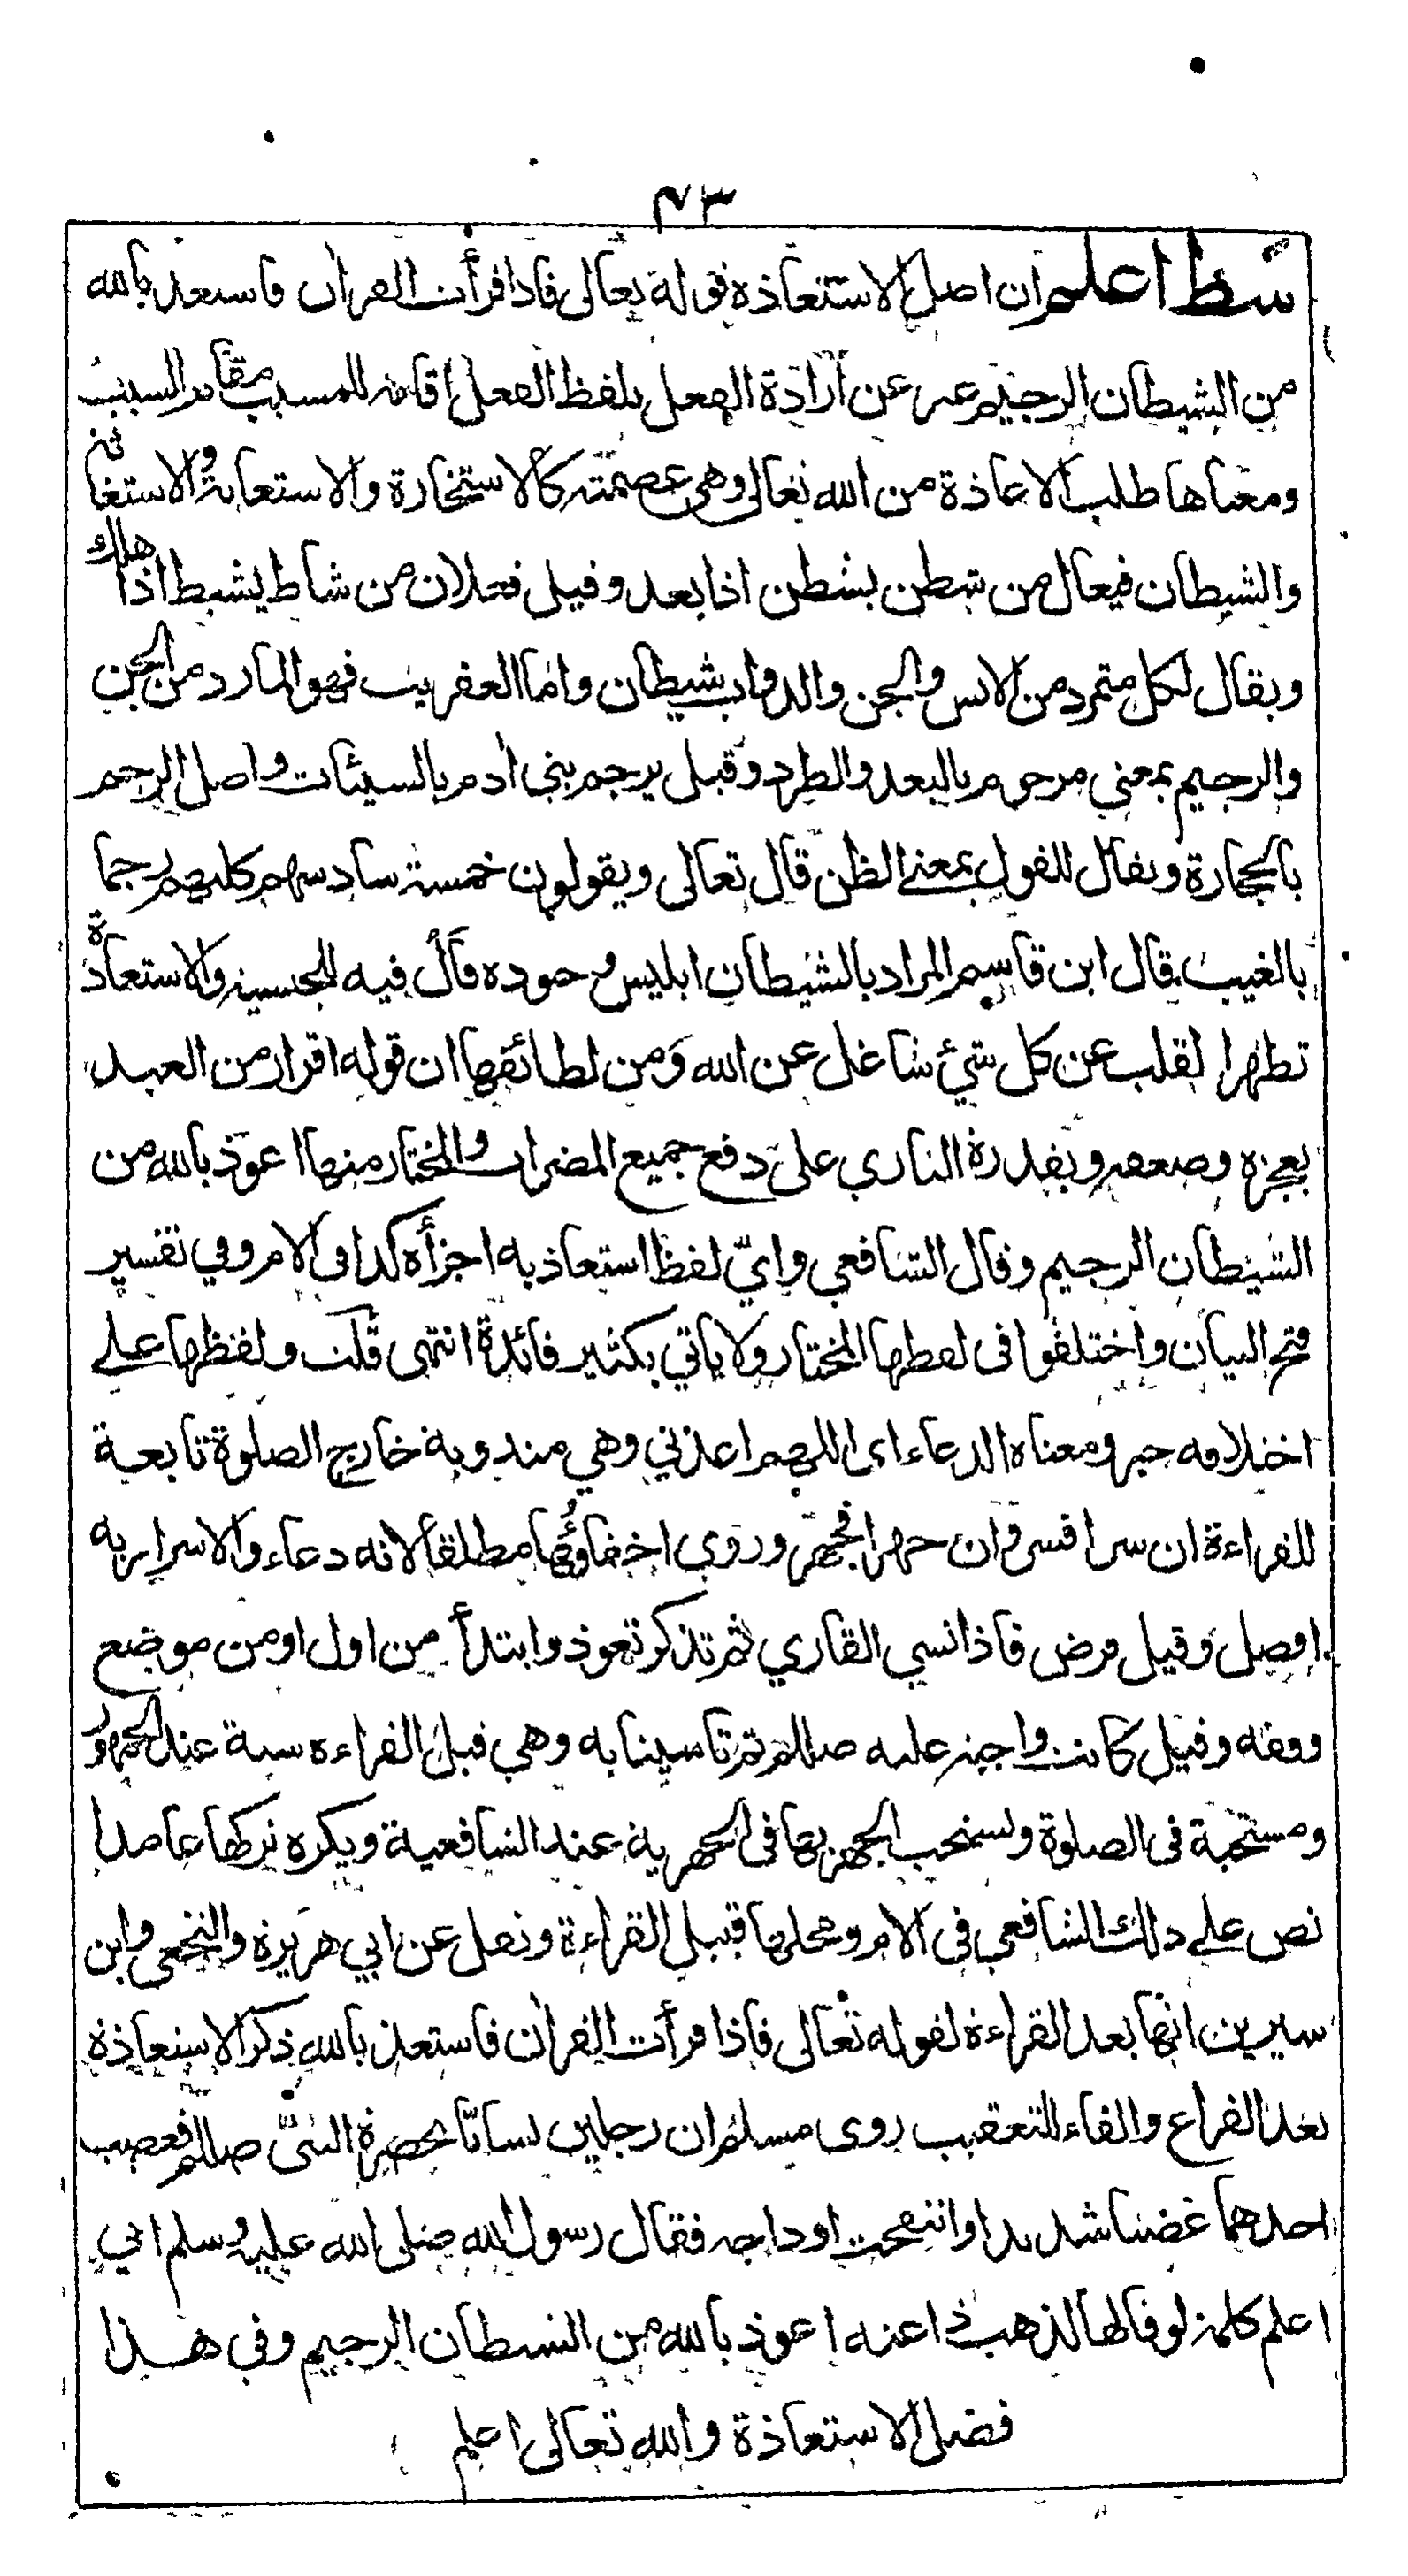 ٧٣
بسط اعلم ان اصل الاستعاذة قوله تعالى فاذا قرأت القرآن فاستعذ بالله
من الشيطان الرجيم عبر عن ارادة الفعل بلفظ الفعل اقامة للمسبب مقام السبب
ومعناها طلب الاعاذة من الله تعالى وهي عصمته كالاستخارة والاستعانة والاستغاثة
والشيطان فيعال من شطن يشطن اذا بعد وقيل فعلان من شاط يشيط اذا هلك
ويقال لكل متمرد من الانس والجن والدواب شيطان واما العفريت فهو المارد من الجن
والرجيم بمعنى مرجوم بالبعد والطرد وقيل يرجم بني آدم بالسيئات واصل الرجم
بالحجارة ويقال للقول بمعنى الظن قال تعالى ويقولون خمسة سادسهم كلبهم رجما
بالغيب قال ابن قاسم المراد بالشيطان ابليس وجنوده فأل فيه للجنسية والاستعاذة
تطهر القلب عن كل شيء شاغل عن الله ومن لطائفها ان قوله اقرار من العبد
بعجزه وضعفه وبقدرة الباري على دفع جميع المضرات والمختار منها اعوذ بالله من
الشيطان الرجيم وقال الشافعي وايّ لفظ استعاذ به اجزأه كذا في الام وفي تفسير
فتح البيان واختلفوا في لفظها المختار ولا ياتي بكثير فائدة انتهى قلت ولفظها على
اختلافه خبر ومعناه الدعاء اى اللهم اعذني وهي مندوبة خارج الصلوة تابعة
للقراءة ان سرا فسر وان جهرا فجهر وروي اخفاؤها مطلقا لانه دعاء والاسرار به
افضل وقيل فرض فاذا نسي القاري ثم تذكر تعوذ وابتدأ من اول او من موضع
وقفه وقيل كانت واجبة عليه صللم ثم تاسينا به وهي قبل القراءة سنة عند الجمهور
ومستحبة في الصلوة ويستحب الجهر بها في الجهرية عند الشافعية ويكره تركها عامدا
نص على ذلك الشافعي في الام ومحلها قبيل القراءة ونقل عن ابي هريرة والنخعي وابن
سيرين انها بعد القراءة لقوله تعالى فاذا قرأت القرآن فاستعذ بالله ذكر الاستعاذة
بعد القراءة والفاء للتعقيب روى مسلم ان رجلين تسابّا بحضرة النبي صللم فغضب
احدهما غضبا شديدا وانتفخت اوداجه فقال رسول الله صلى الله عليه وسلم اني
اعلم كلمة لو قالها لذهب ذا عنه اعوذ بالله من الشيطان الرجيم وفي هذا
فضل الاستعاذة والله تعالى اعلم